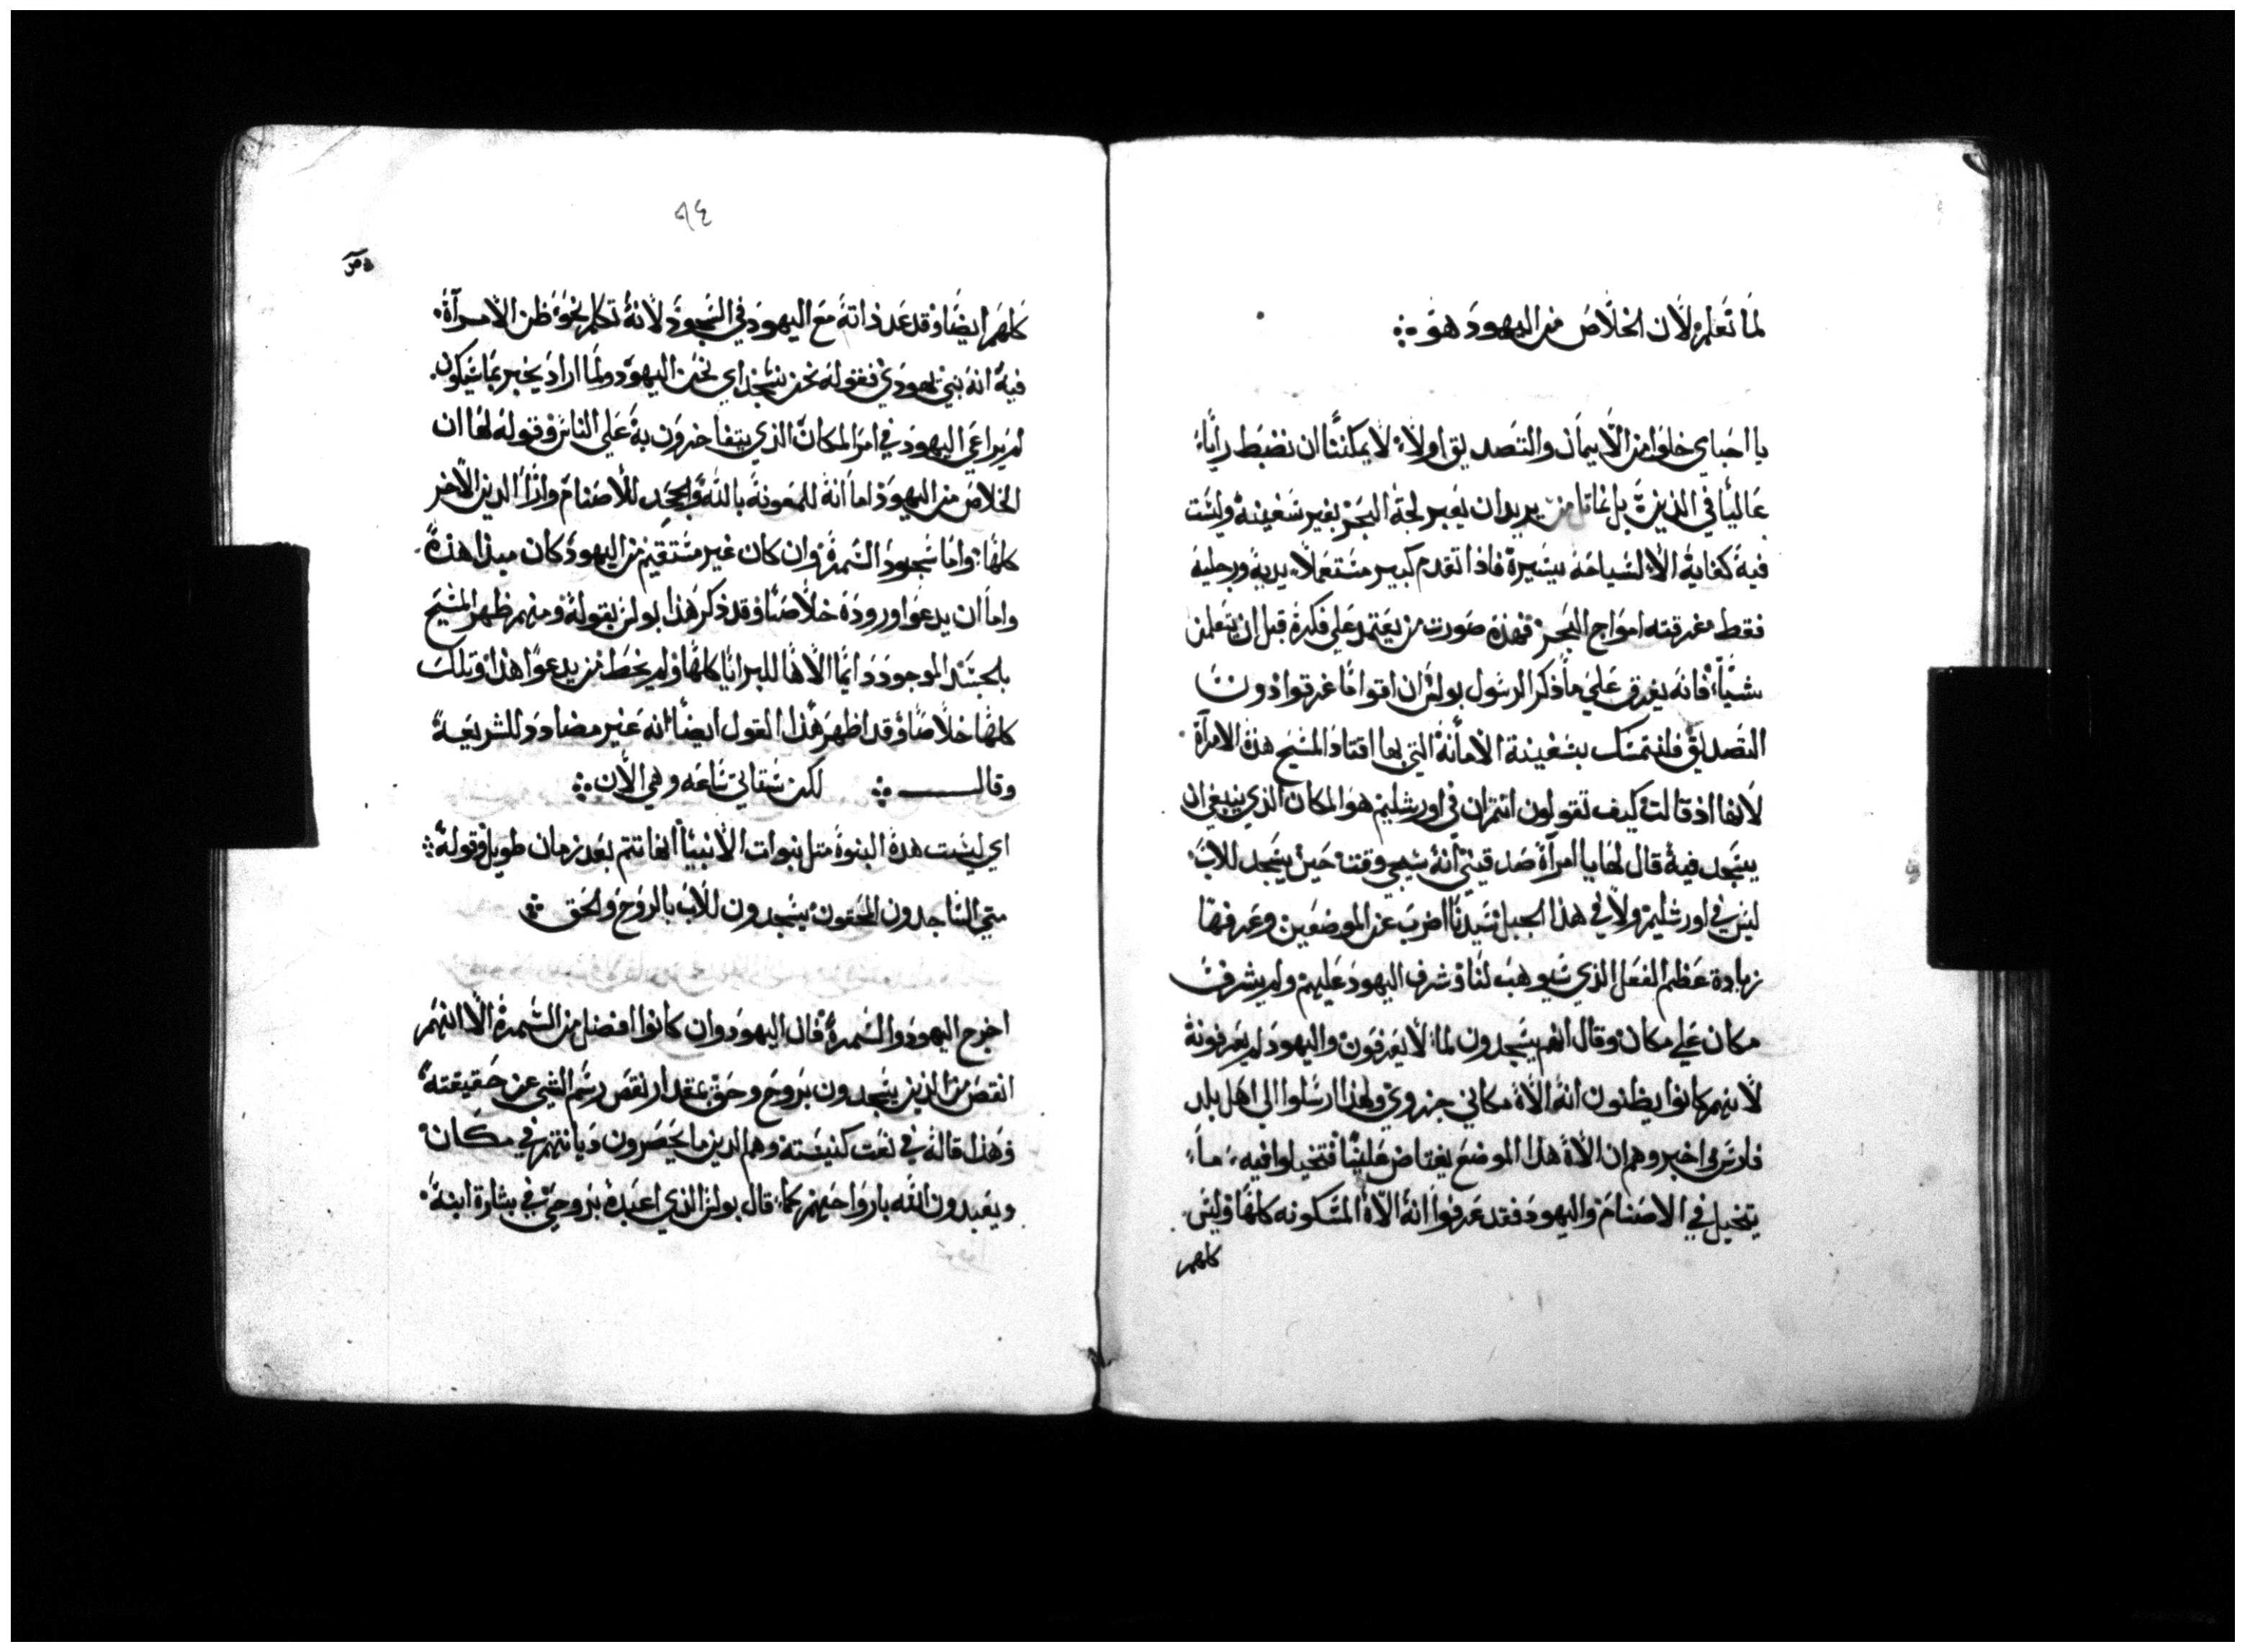 لما نعلم لان الخلاص من اليهود هو
يا احباي خلوا من الايمان والتصديق اولاً لا يمكننا ان نضبط راياً
عالياً في الذين بل نماثل من يريد ان يعبر لجة البحر بغير سفينة وليست
فيه كفاية الا لسياحة يسيرة فاذا تقدم كبير مستعملاً يديه ورجليه
فقط مغرقته امواج البحر فهذه صورت من يعتمد علي فكرة قبل ان يتعلم
شياً فانه يغرق علي ما ذكر الرسول بولس ان اقواماً غرقوا دون
التصديق فلنتمسك بسفينة الامانة التي بها اقتاد المسيح هذه الامرآة
لانها اذ قالت كيف تقولون انتم ان في اورشليم هو المكان الذي ينبغي ان
يسجد فيه قال لها يا امرآة صدقيني انه سيجي وقت حين يسجد للاب
ليس في اورشليم ولا في هذا الجبل سيدنا اضرب عن الموضعين وعرفها
زيادة عظم الفعل الذي سيوهب لنا وشرف اليهود عليهم ولم يشرف
مكان علي مكان وقال انهم يسجدون لما لا يعرفون واليهود لم يعرفونه
لانهم كانوا يظنون انه الاه مكاني جزوي ولهذا ارسلوا الي اهل بلد
فارس اخبروهم ان الاه هذا الموضع يغتاض علينا فتخيلوا فيه ما
يتخيل في الاصنام واليهود فقد عرفوا انه الاه المسكونه كلها وليس
كلهم
٩٤
كلهم ايضا وقد عد ذاته مع اليهود في السجود لانه تكلم نحو ظن الامرآة
فيه انه نبي يهودي فقوله نحن نسجد اي نحن اليهود ولما اراد يخبر بما سيكون
لم يراعي اليهود في امر المكان الذي يتفاخرون به علي الناس وقوله لها ان
الخلاص من اليهود اما انه للمعونة بالله وبجحد للاصنام واذا الدين الاخر
كلها واما سجود السمرة وان كان غير مستقيم من اليهود كان مبدا هذه
واما ان يدعوا وروده خلاصاً وقد ذكر هذا بولس بقوله ومنهم ظهر المسيح
بالجسد الموجود دايماً الاها للبرايا كلها ولم يخط من يدعوا هذا وتلك
كلها خلاصاً وقد اظهر هذا القول ايضاً انه غير مضادد للشريعة
وقال لكن ستاتي ساعه وهي الان
اي ليست هذه النبوة مثل نبوات الانبيا انها تتم بعد زمان طويل وقوله
متي الساجدون المحقون يسجدون للاب بالروح والحق
اخرج اليهود والسمرة فان اليهود وان كانوا افضل من السمرة الا انهم
انقص من الذين يسجدون بروح وحق بمقدار نقص رسم الشي عن حقيقته
وهذا قاله في نعت كنيسته وهم الذين ما يحصرون ديانتهم في مكان
ويعبدون الله بارواحهم كما قال بولس الذي اعبده بروحي في بشارة ابنه